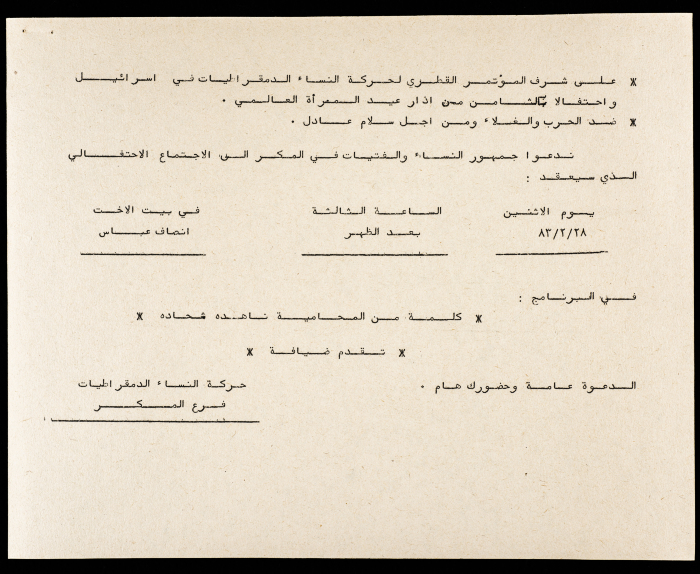 * على شرف المؤتمر القطري لحركة النساء الدمقراطيات في اسرائيل
واحتفالا بالثامن من اذار عيد المرأة العالمي .
* ضد الحرب والغلاء ومن اجل سلام عادل .
ندعوا جمهور النساء والفتيات في المكر الى الاجتماع الاحتفالي
الذي سيعقد :
يوم الاثنين الساعة الثالثة في بيت الاخت
٨٣/٢/٢٨ بعد الظهر انصاف عباس
في البرنامج :
* كلمة من المحامية ناهده شحاده *
* تقدم ضيافة *
الدعوة عامة وحضورك هام . حركة النساء الدمقراطيات
فرع المكر